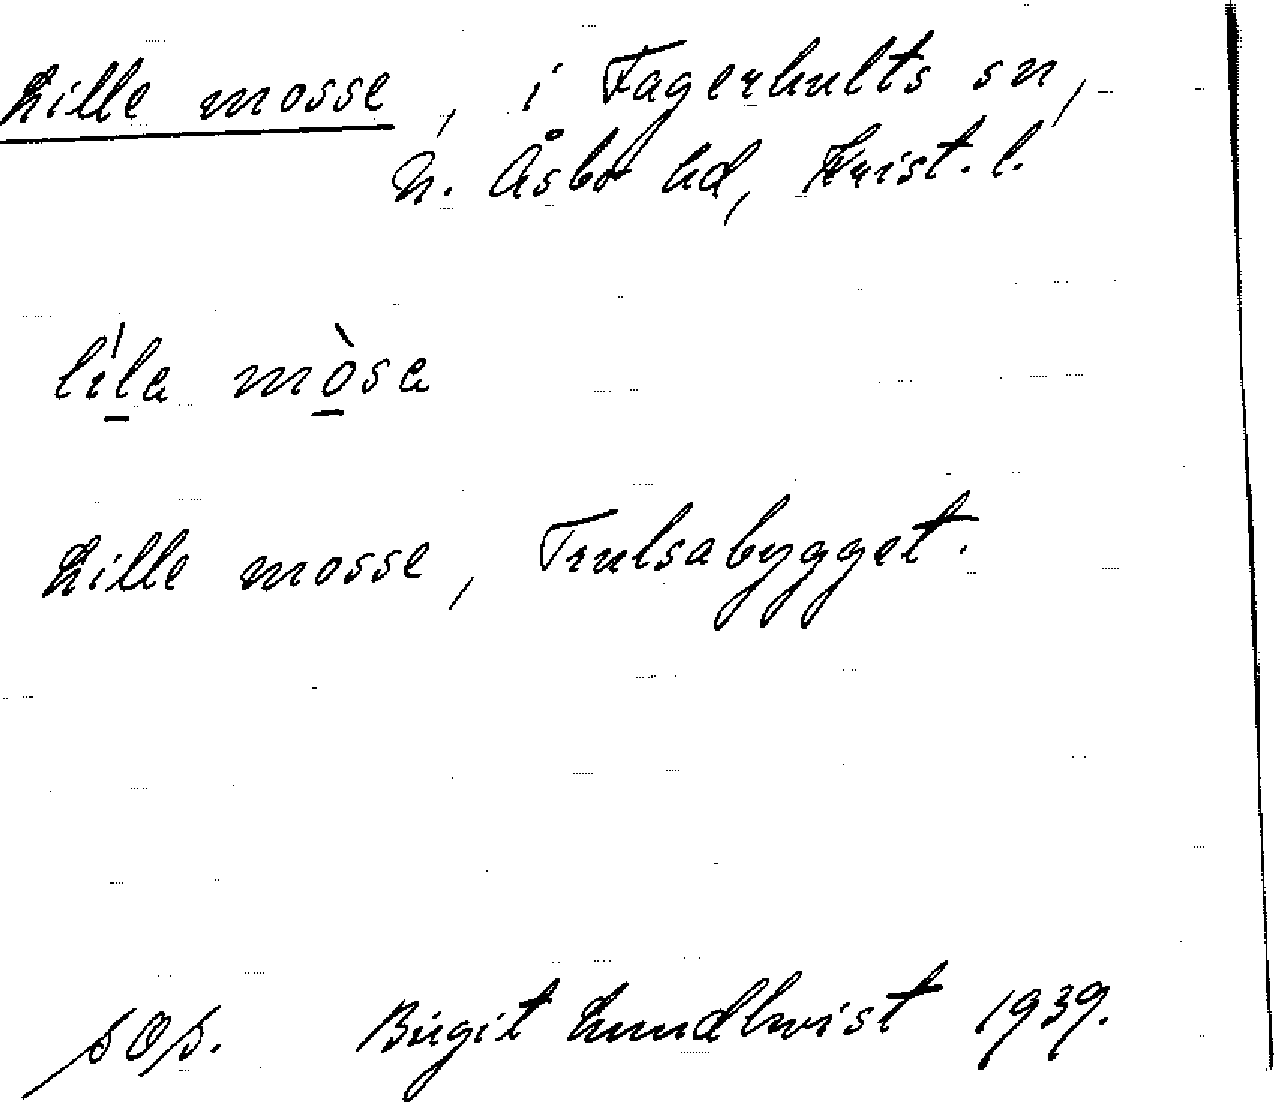 Lille mosse, i Fagerhults sn,
N. Åsbo hd, Krist. l.
líla mòsa
Lille mosse, Trulsabygget.
SOS. Birgit Lundkvist 1939.